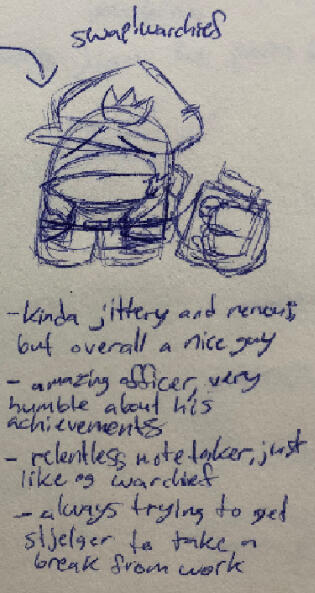 swap!warchief
- kinda jittery and nervous,
but overall a nice guy
- amazing officer, very
humble about his
achievements
- relentless note taker, just
like og warchief
- always trying to get
stjelger to take a
break from work